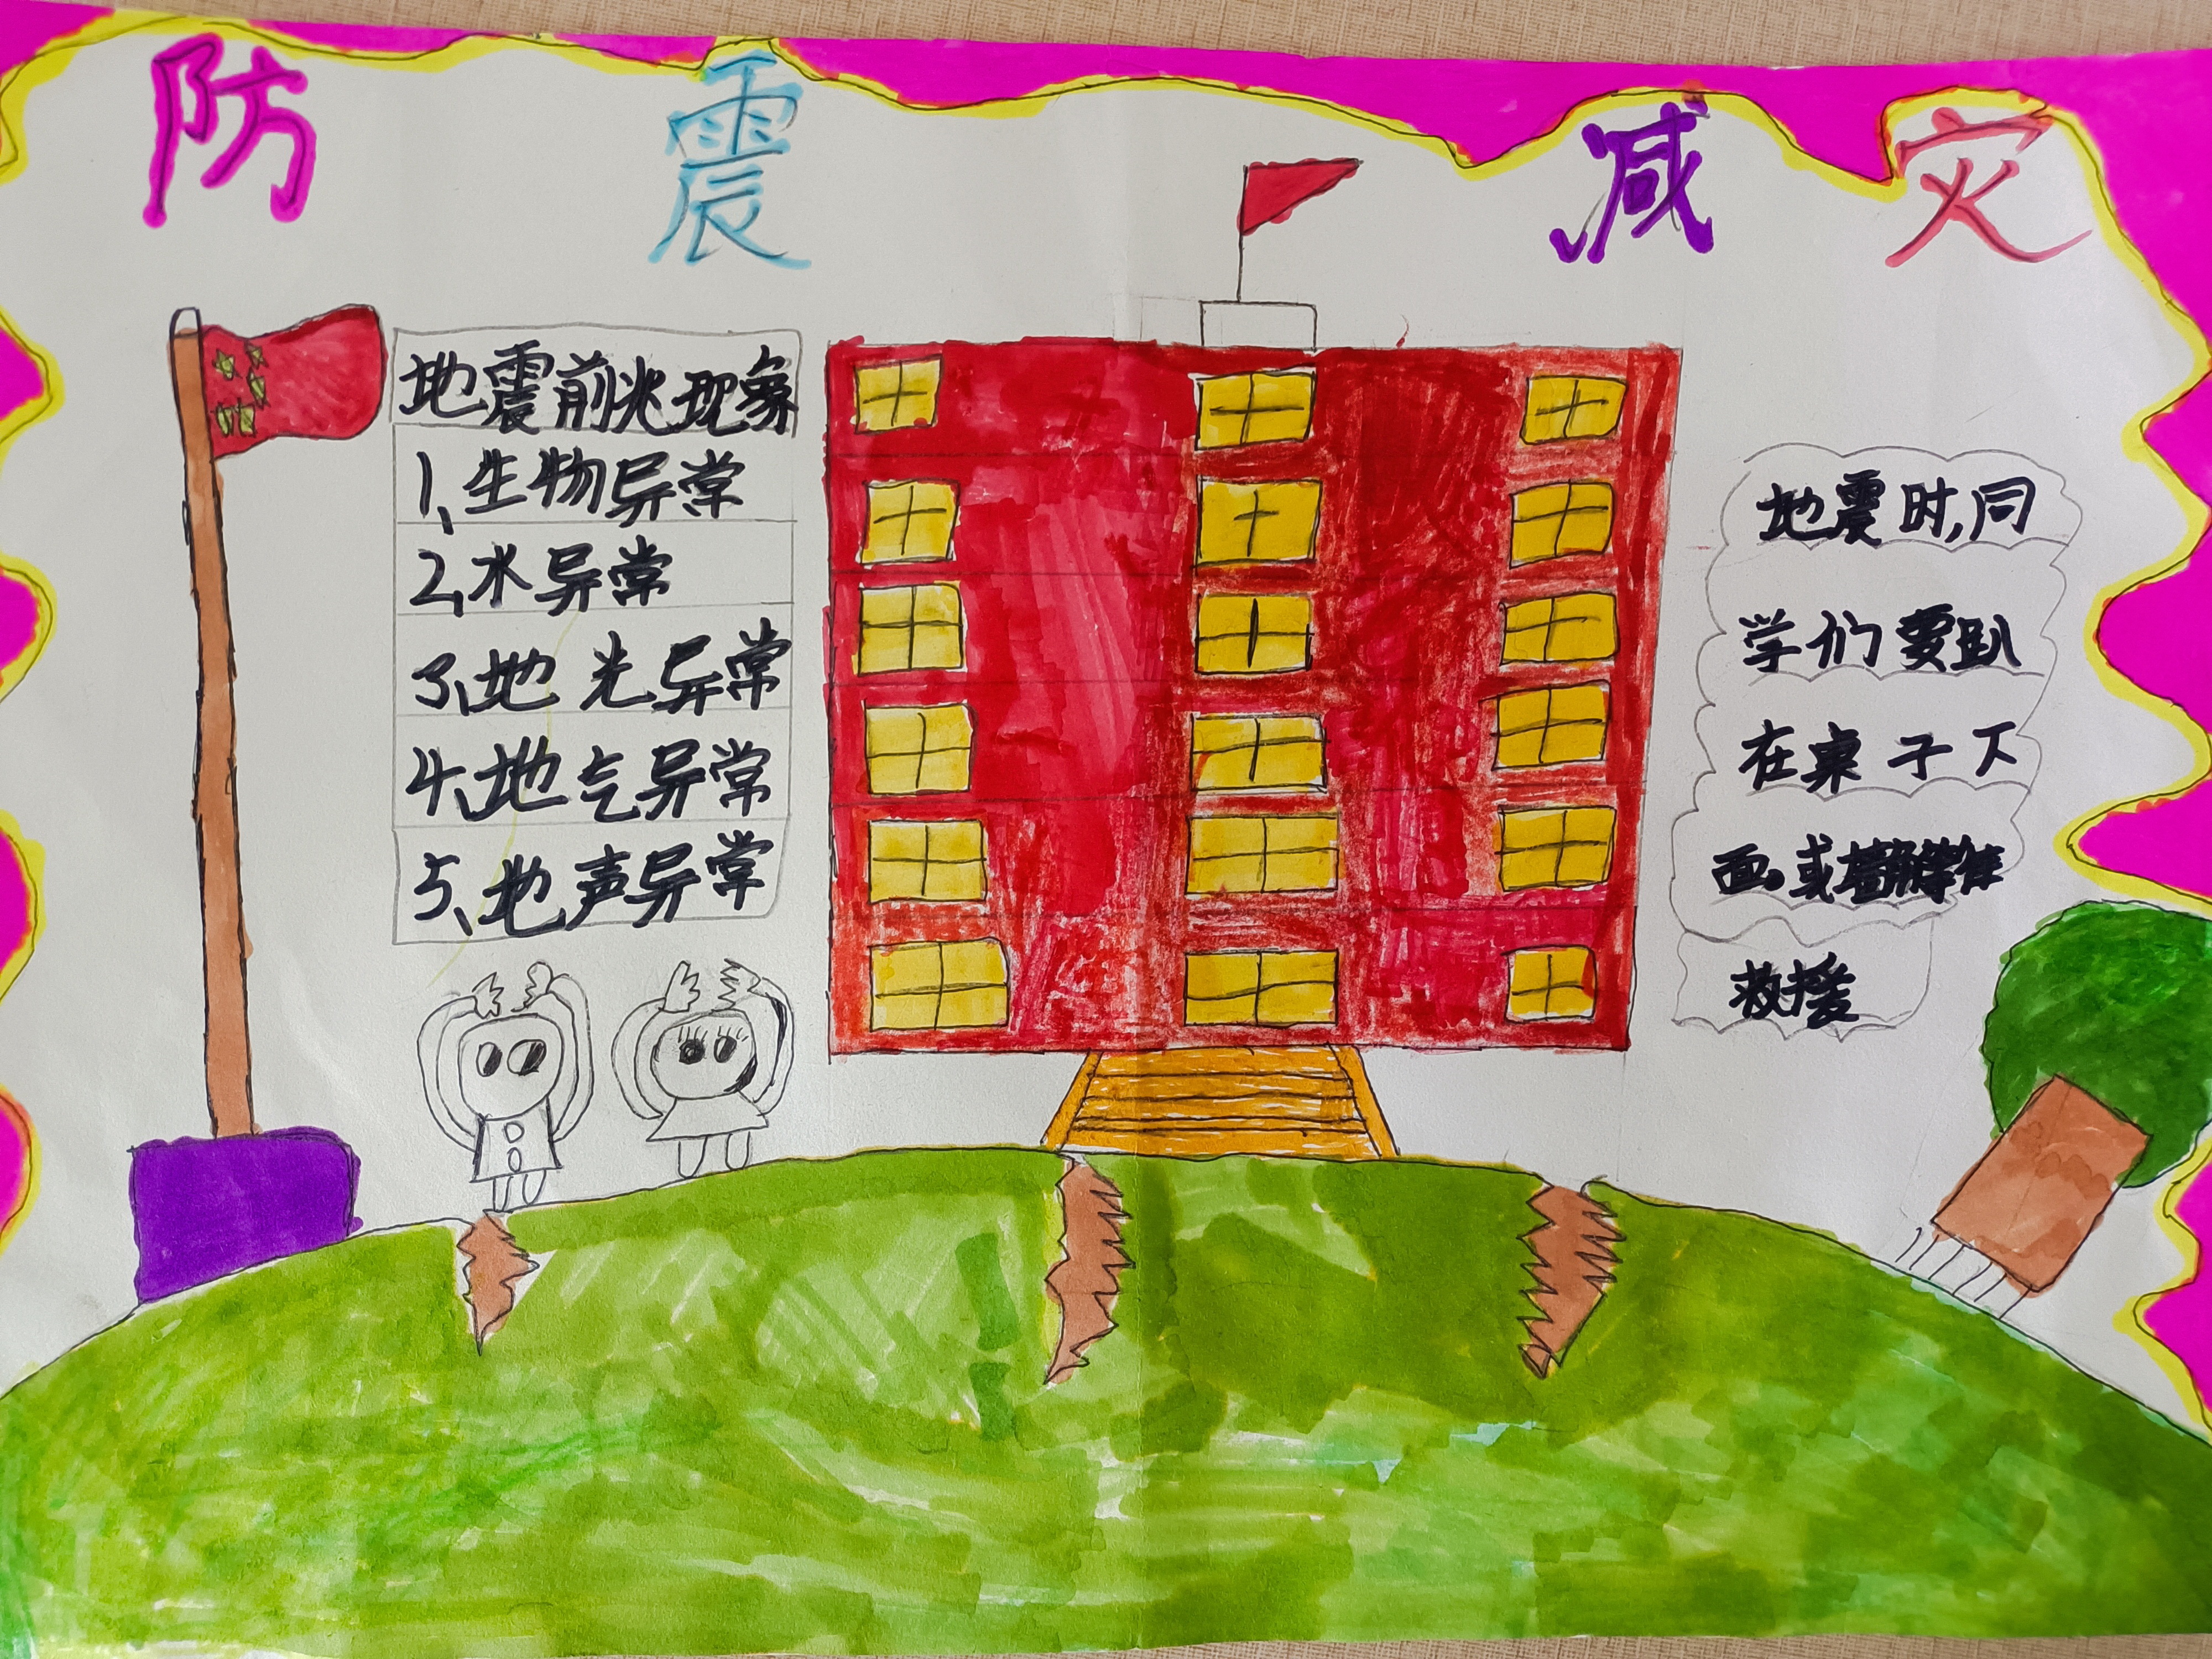 防震减灾
地震前兆现象
1、生物异常
2、水异常
3、地光异常
4、地气异常
5、地声异常
地震时,同
学们要趴
在桌子下
面。或墙角等待
救援